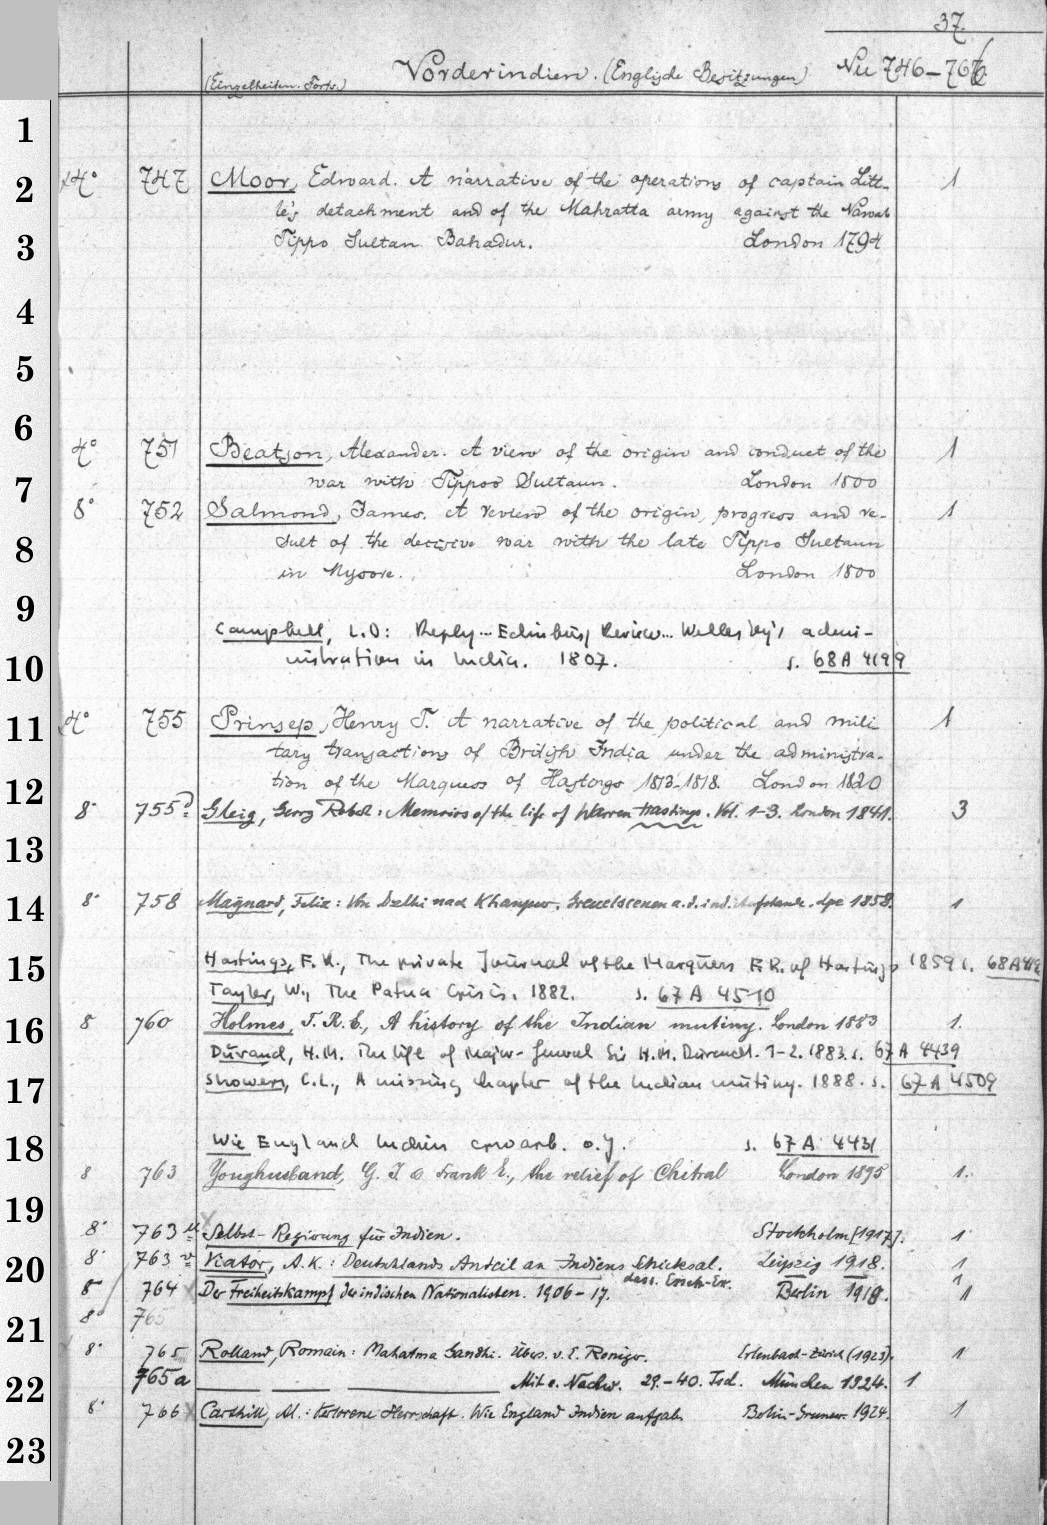 37.
(Einzelheiten. Forts.) Vorderindien. (Englische Besitzungen) Nu 746-766
1
2 4° 747 Moor, Edward. A narrative of the operations of captain Litt- 1
le's detachment and of the Mahratta army against the Nawab
3 Tippo Sultan Bahadur. London 1794
4
5
6
4° 751 Beatson, Alexander. A view of the origin and conduct of the 1
7 war with Tippoo Sultaun. London 1800
8° 752 Salmond, James. A review of the origin, progress and re- 1
8 sult of the decisive war with the late Tippo Sultaun
in Mysore. London 1800
9
Campbell, L.D: Reply... Edinburg Review... Wellesley's admi-
10 nistration in India. 1807. s. 68 A 4199
11 4° 755 Prinsep, Henry T. A narrative of the political and mili 1
tary transactions of British India under the administra-
12 tion of the Marquess of Hastings 1813-1818. London 1820
8° 755a Gleig, Georg Robert: Memoirs of the life of Warren Hastings. Vol. 1-3. London 1841. 3
13
14 8° 758 Maynard, Felix: Von Delhi nach Khanpur. Greuelscenen a. d. ind. Aufstande. Lpz 1858. 1
15 Hastings, F. R., The private Journal of the Marquess F. R. of Hastings 1859 s. 68 A
Tayler, W., The Patna Crisis. 1882. s. 67 A 4510
16 8 760 Holmes, T. R. E., A history of the Indian mutiny. London 1883 1.
Durand, H. M. The life of Major-General Sir H. M. Durand. 1-2. 1883. s. 67 A 4439
17 Showers, C. L., A missing chapter of the Indian mutiny. 1888. s. 67 A 4509
18 Wie England Indien erwarb. o. J. s. 67 A 4431
8 763 Younghusband, G. J. & Frank E., the relief of Chitral London 1895 1.
19
8° 763 u Selbst-Regierung für Indien. Stockholm [1917]. 1
20 8° 763 v Viator, A. K.: Deutschlands Anteil an Indiens Schicksal. Leipzig 1918. 1
dass. Ersch-Ex. 1
8° 764 Der Freiheitskampf der indischen Nationalisten. 1906-17. Berlin 1918. 1
21 8° 765
8° 765 Rolland, Romain: Mahatma Gandhi. Übers. v. E. Roniger. Erlenbach-Zürich (1923). 1
22 765a Mit e. Nachw. 29.-40. Tsd. München 1924. 1
8° 766 Carthill, Al.: Verlorene Herrschaft. Wie England Indien aufgab. Berlin-Grunew. 1924. 1
23